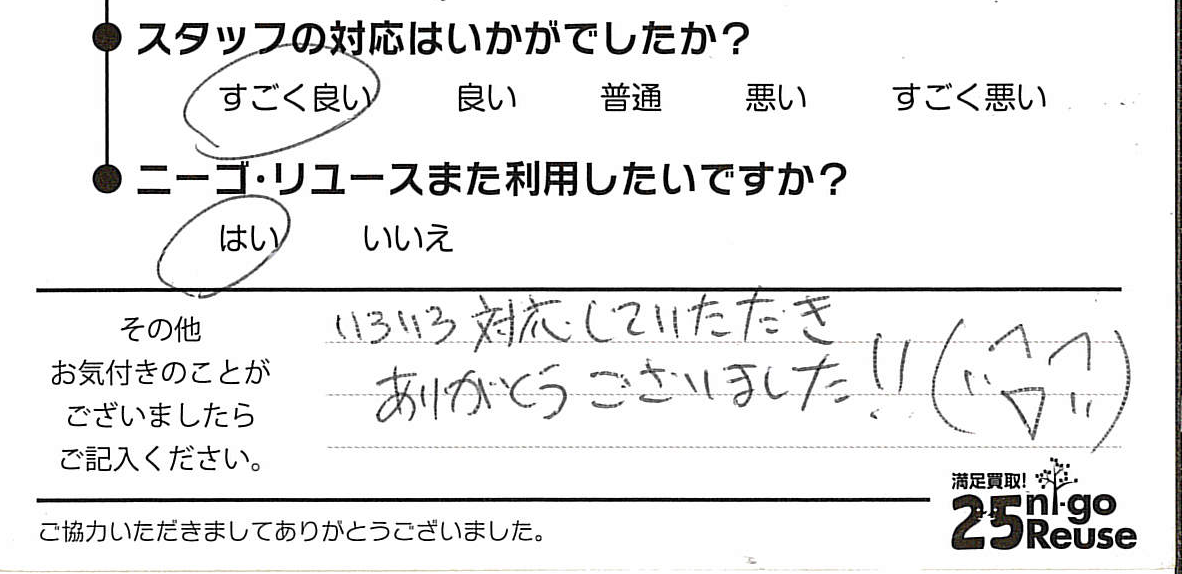 スタッフの対応はいかがでしたか？
すごく良い 良い 普通 悪い すごく悪い
ニーゴ・リユースまた利用したいですか？
はい いいえ
その他
お気付きのことが
ございましたら
ご記入ください。
いろいろ対応していただき
ありがとうございました!!(^▽^)
ご協力いただきましてありがとうございました。
満足買取!
25 ni-go
Reuse